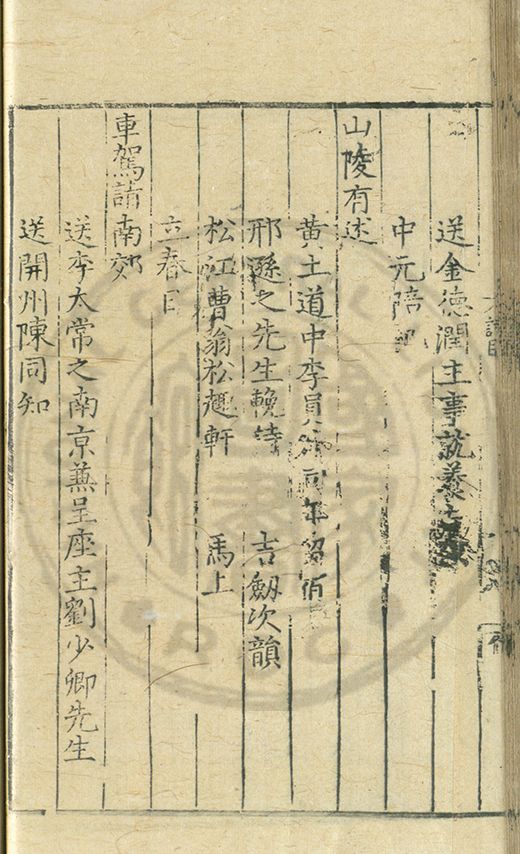 送金德潤主事就養
中元陪
山陵有述
黃土道中李員
邢遜之先生輓詩 古劔次韻
松江曹翁松趣軒 馬上
立春日
車駕詣南郊
送李太常之南京兼呈座主劉少卿先生
送開州陳同知